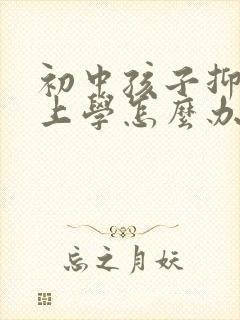 初中孩子抑
上學怎麼办
忘之月妖